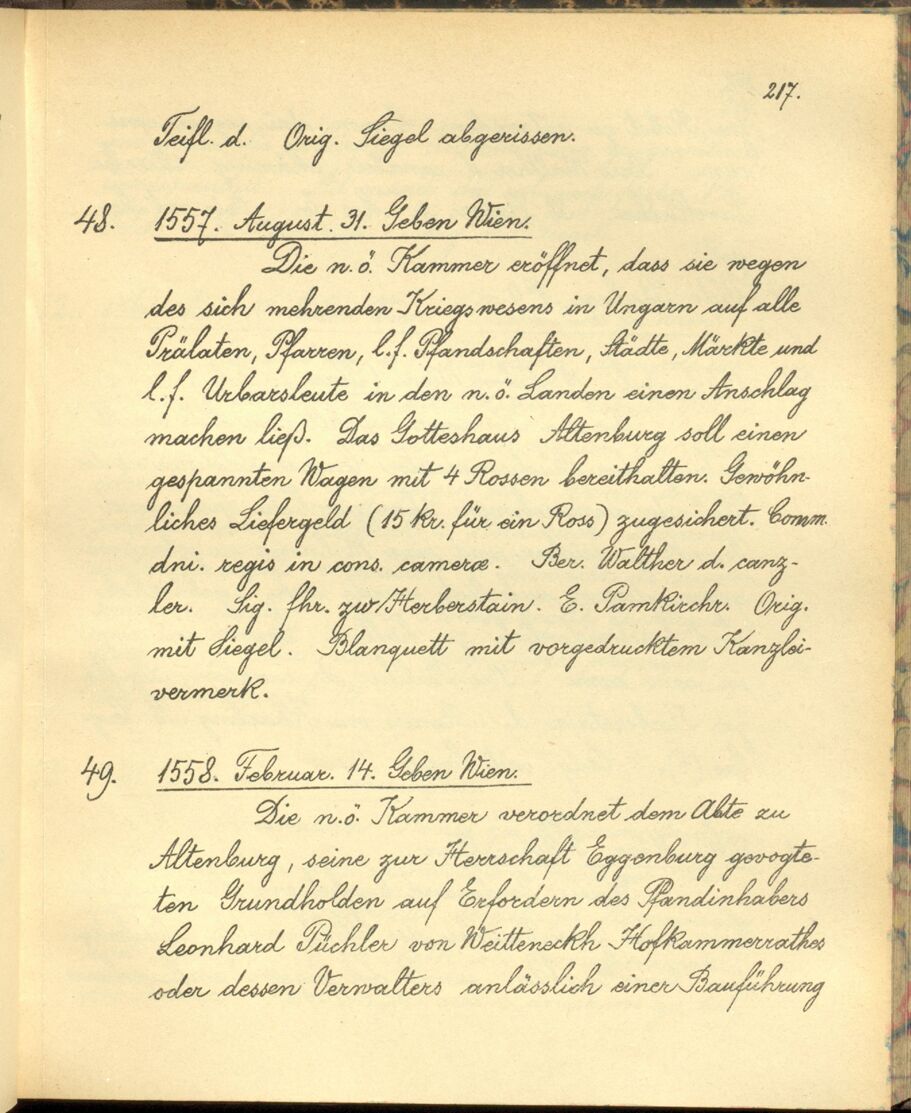 217.
Teifl. d. Orig. Siegel abgerissen.
48. 1557. August. 31. Geben Wien.
Die n. ö. Kammer eröffnet, dass sie wegen
des sich mehrenden Kriegswesens in Ungarn auf alle
Prälaten, Pfarren, l. f. Pfandschaften, Städte, Märkte und
l. f. Urbarsleute in den n. ö. Landen einen Anschlag
machen ließ. Das Gotteshaus Altenburg soll einen
gespannten Wagen mit 4 Rossen bereithalten. Gewöhn-
liches Liefergeld (15 kr. für ein Ross) zugesichert. Comm.
dni. regis in cons. cameræ. Ber. Walther d. canz-
ler. Sig. fhr. zw Herberstain. E. Pamkirchr. Orig.
mit Siegel. Blanquett mit vorgedrucktem Kanzlei-
vermerk.
49. 1558. Februar. 14. Geben Wien.
Die n. ö. Kammer verordnet dem Abte zu
Altenburg, seine zur Herrschaft Eggenburg gevogte-
ten Grundholden auf Erfordern des Pfandinhabers
Leonhard Püchler von Weitteneckh Hofkammerrathes
oder dessen Verwalters anlässlich einer Bauführung